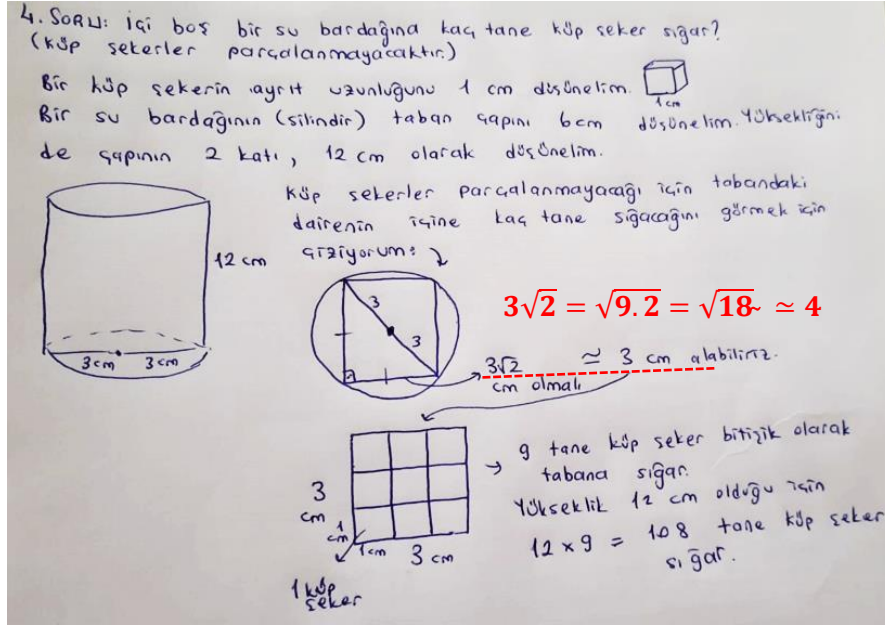 4. SORU: İçi boş bir su bardağına kaç tane küp şeker sığar?
(Küp şekerler parçalanmayacaktır.)
Bir küp şekerin ayrıt uzunluğunu 1 cm düşünelim.
1 cm
Bir su bardağının (silindir) taban çapını 6cm düşünelim. Yüksekliğini
de çapının 2 katı, 12 cm olarak düşünelim.
Küp şekerler parçalanmayacağı için tabandaki
dairenin içine kaç tane sığacağını görmek için
çiziyorum:
12 cm
3 cm 3 cm
3
3
3√2 = √9.2 = √18~ ≃ 4
3√2 ≃ 3 cm alabiliriz.
cm olmalı
3
cm
1
cm
1cm 3 cm
1 küp
şeker
→ 9 tane küp şeker bitişik olarak
tabana sığar.
Yükseklik 12 cm olduğu için
12 x 9 = 108 tane küp şeker
sığar.